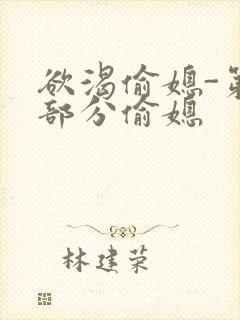 欲渴偷媳-第
部分偷媳
林建荣